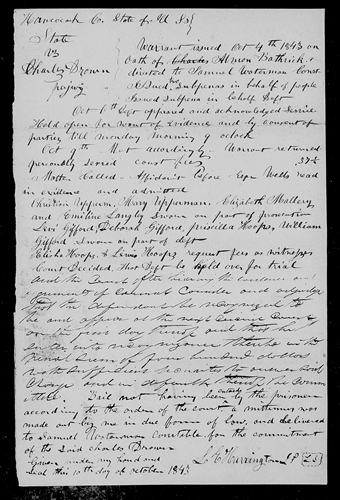 Hancock Co. State of Ill SS
State
vs
Charles Brown
perjury
Warrant issued Oct 4th 1843 on
oath of Charles Alvson Bathrick &
directed to Samuel Waterman Const
Issued Subpenas in behalf of people
Issued Subpena in behalf Deft
Oct 6th Deft appeared and acknowledged service
Held open for want of Evidence and by consent of
parties till monday morning 9 oclock
Oct 9th Met accordingly. Warrant returned
personly served const fees
Matter Called - Affidavit before Esqr Wells read
in evidence and admitted
Christian Upperman, Mary Upperman, Elizabeth Mallery
and Emiline Langley Sworn on part of prosecution
Levi Gifford, Deborah Gifford, priscilla Hoops, William
Gifford Sworn on part of deft
Elisha Hoops, & Lewis Hoops request fees as witnesses
Court Decided, that Deft be held over for trial
and the Court after hearing the evidence and
arguments of Council Consider and adjudge
that the defendant be recognized to
be and appear at the next Circuit Court
on the first day thereof and that he
enter into recognizance with
penal sum of four hundred dollars
with sufficient securities to answer said
charge and in default the
. Bail not having been entered by the prisoner
according to the order of the court a mittimus was
made out by me in due form of law, and delivered
to Samuel Waterman Constable for the commitment
of the said charles Brown
Given under my hand and
Seal this 10th day of October 1843
Harrington JP